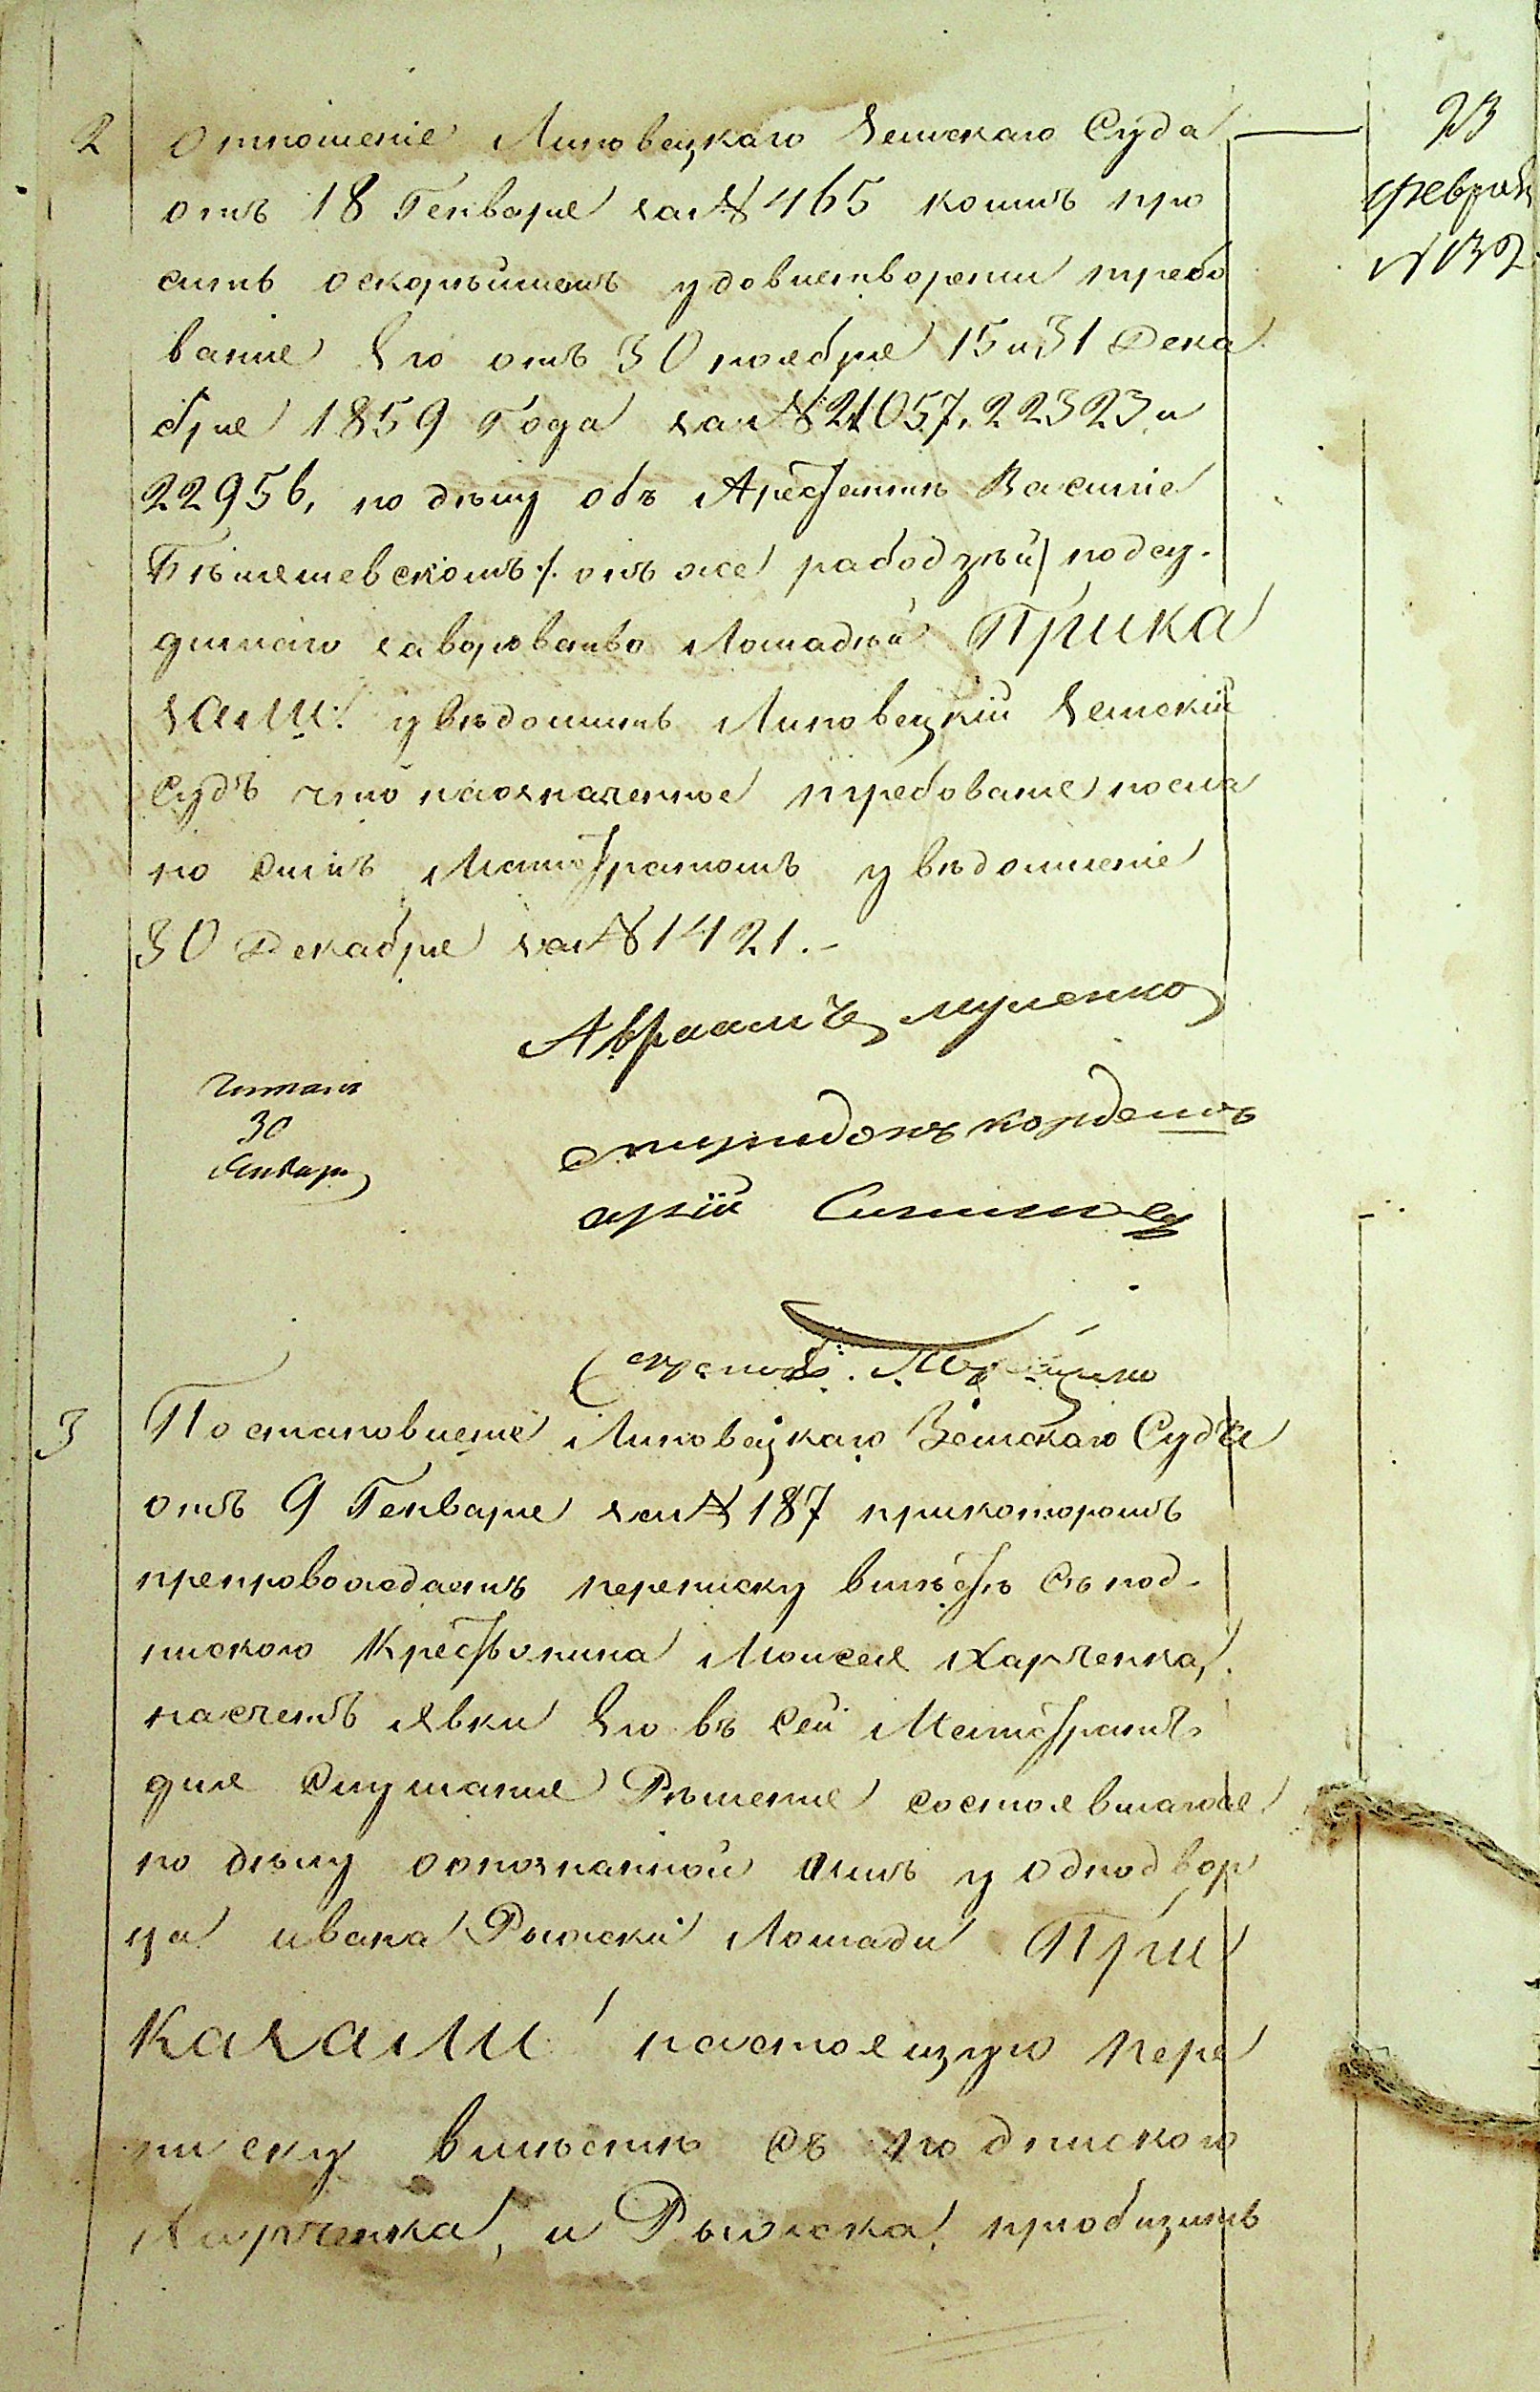 2
Отношеніе Липовецкаго Земскаго Суда
23
феврал
№ 132
отъ 18 Генваря за № 465 коимъ про
ситъ оскорѣйшемъ удовлетвореніи требо
ваніе Его отъ 30 ноября 15 и 31 Дека
бря 1859 Года за № 21057, 22323 и
22956, по дѣлу объ Арестантѣ Василіе
онъ же подсу-
димаго заворовство Лошадей Прика
зали: увѣдомить Липовецкій Земскій
Судъ что наозначенное требованіе посла
но симъ Магистратомъ увѣдомленіе
30 Декабря за № 1421.-
Авраамъ
Читалъ
30
Январ
Спиридонъ
3
Постановленіе Липовецкаго Земскаго Суда
отъ 9 Генваря за № 187 прикоторомъ
препровождаетъ переписку вмѣстѣ съ под-
пискою Крестьянина Моисея Харченка,
насчетъ явки Его въ сей Магистратъ
для слушанія Рѣшенія состоявшагося
по дѣлу оопознанной имъ у однодвор
ца ивана Рыжски Лошади При
казали настоящую пере
писку вмѣстѣ съ подпискою
Харченка, и Рыжска, пріобщить